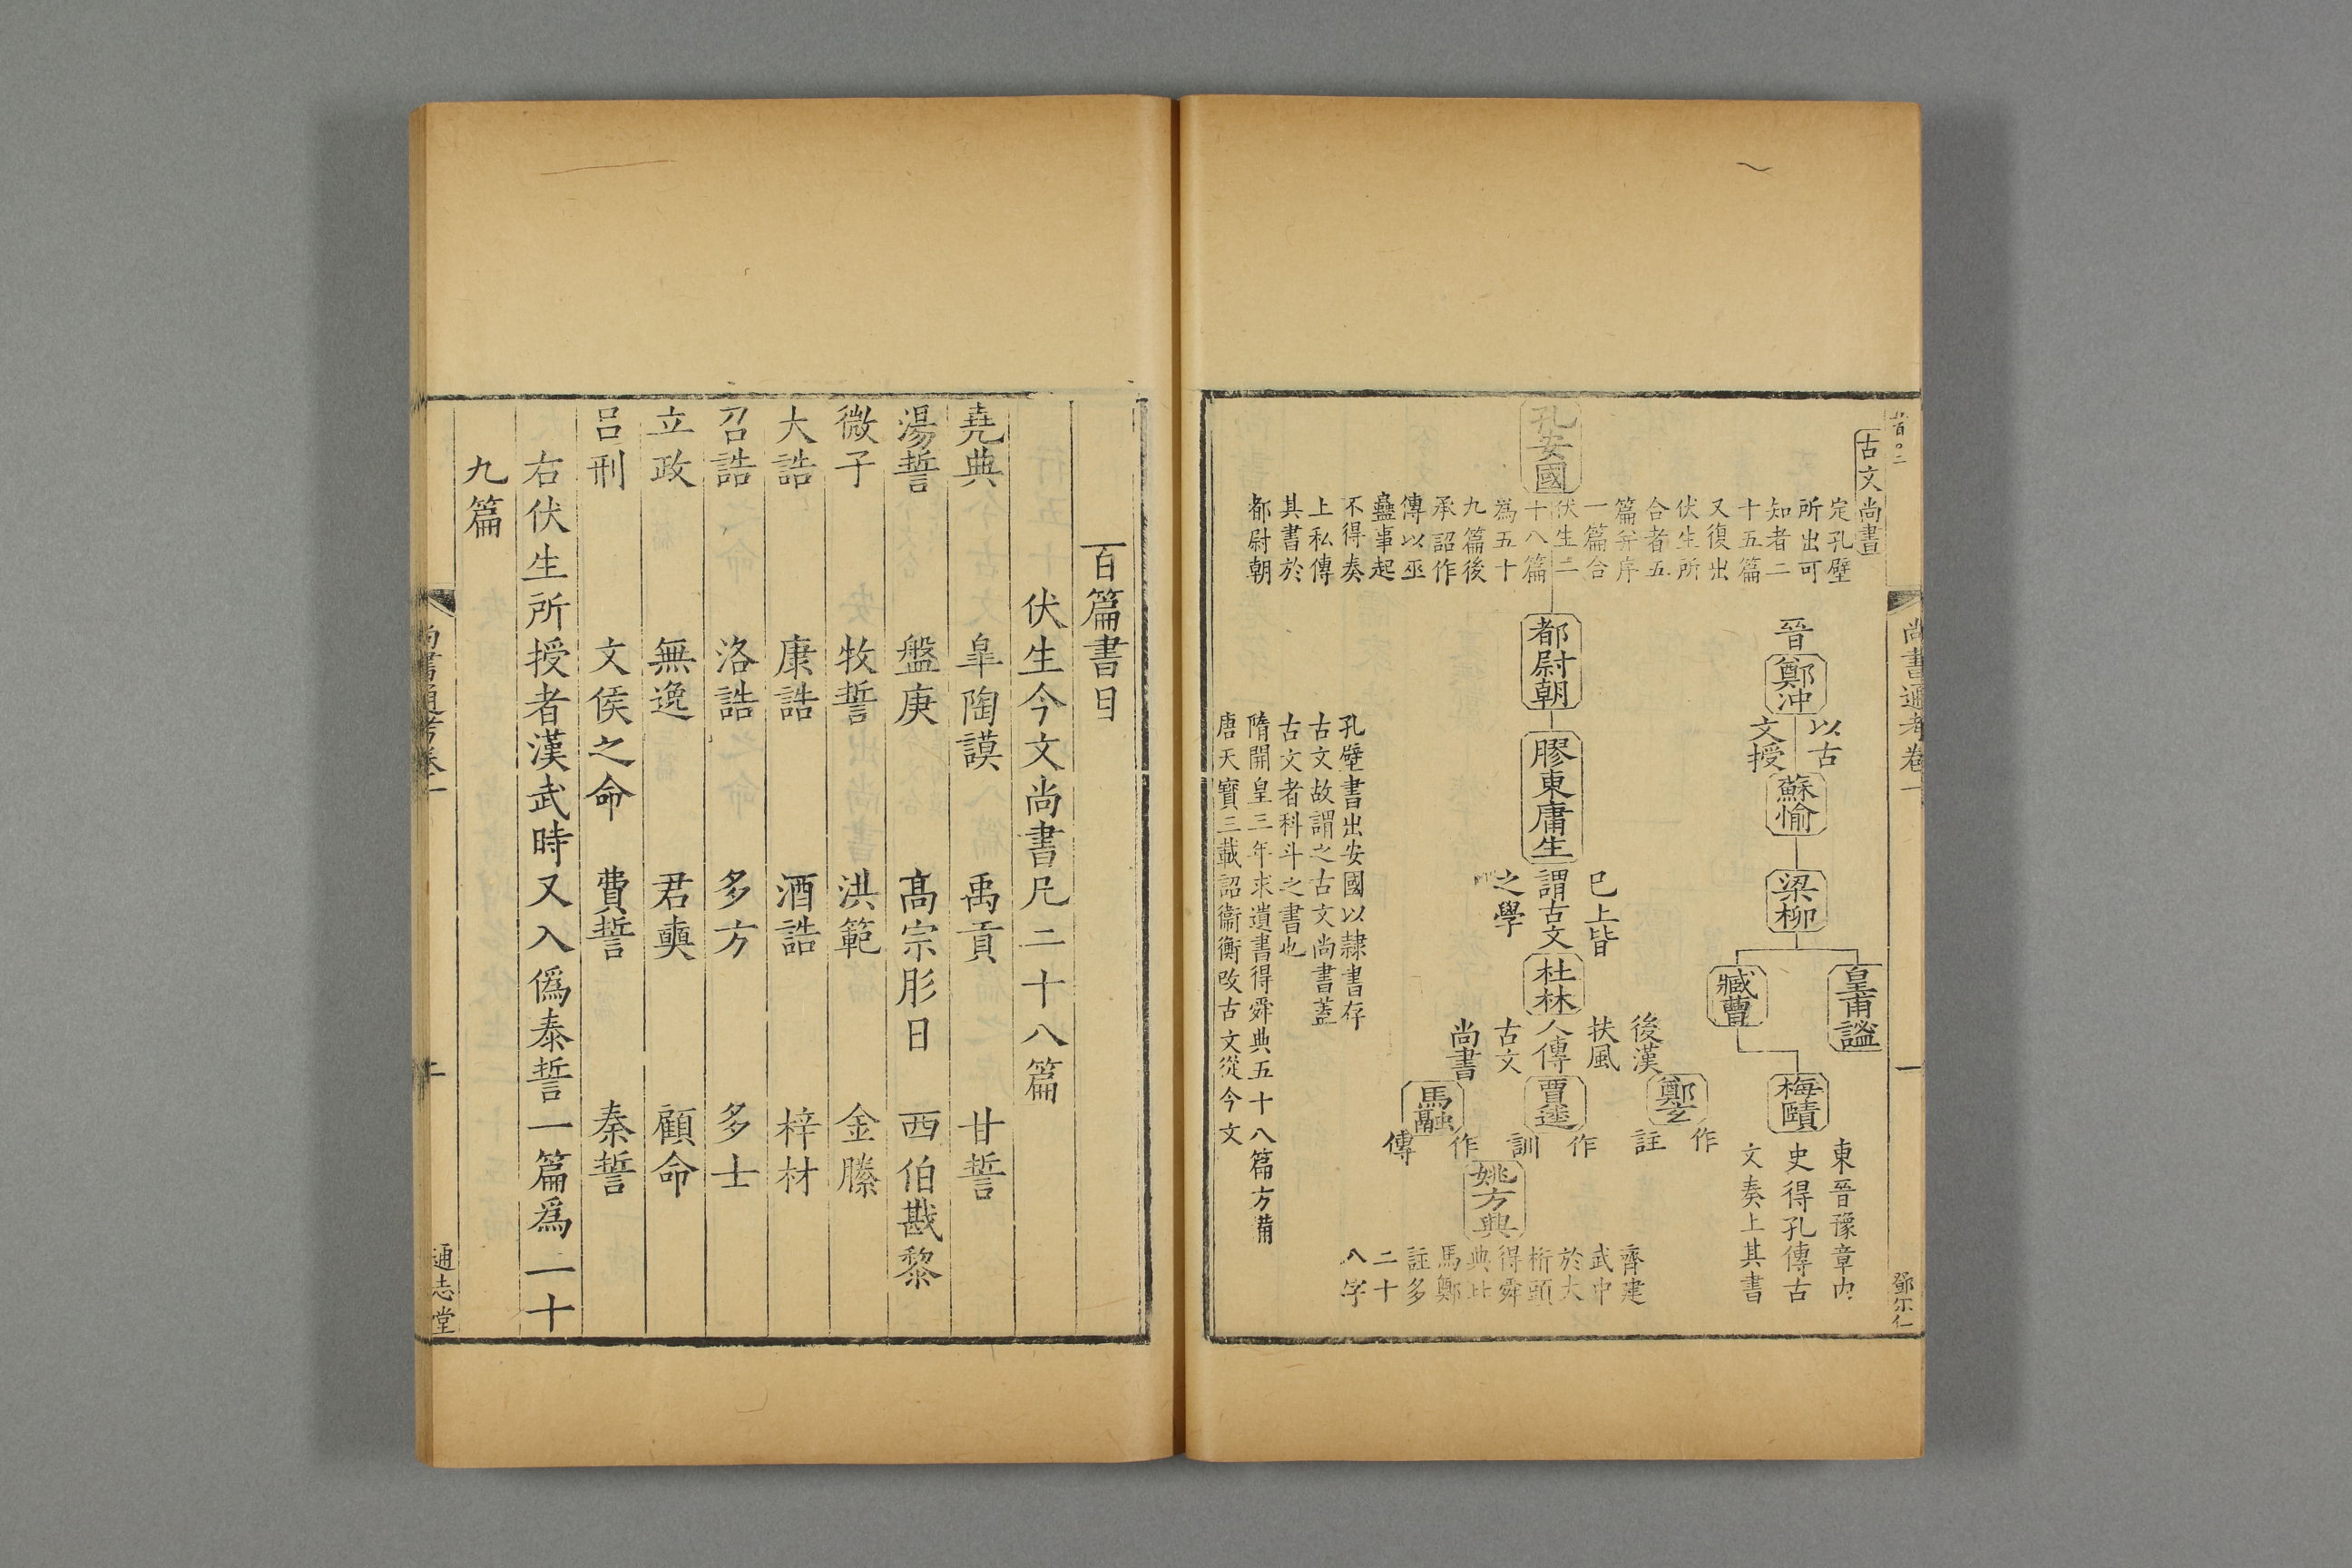 尚書通考卷一
一
鄧尒仁
古文尚書
孔安國
定孔壁
所出可
知者二
十五篇
又復出
伏生所
合者五
篇并序
一篇合
伏生二
十八篇
為五十
九篇後
承詔作
傳以巫
蠱事起
不得奏
上私傳
其書於
都尉朝
都尉朝
膠東庸生
巳上皆
謂古文
之學
杜林
後漢
扶風
人傳
古文
尚書
鄭玄
作
註
賈逵
作
訓
馬融
作
傳
姚方興
齊建
武中
於大
桁頭
得舜
典比
馬鄭
註多
二十
八字
晉
鄭冲
以古
文授
蘇愉
梁柳
皇甫謐
臧曹
梅賾
東晉豫章內
史得孔傳古
文奏上其書
孔壁書出安國以隷書存
古文故謂之古文尚書蓋
古文者科斗之書也
隋開皇三年求遺書得舜典五十八篇方備
唐天寶三載詔衞衡改古文從今文
百篇書目
伏生今文尚書凡二十八篇
堯典 臯陶謨 禹貢 甘誓
湯誓 盤庚 高宗肜日 西伯戡黎
微子 牧誓 洪範 金縢
大誥 康誥 酒誥 梓材
召誥 洛誥 多方 多士
立政 無逸 君奭 顧命
呂刑 文侯之命 費誓 秦誓
右伏生所授者漢武時又入僞泰誓一篇爲二十
九篇
尚書通考卷一
二
通志堂